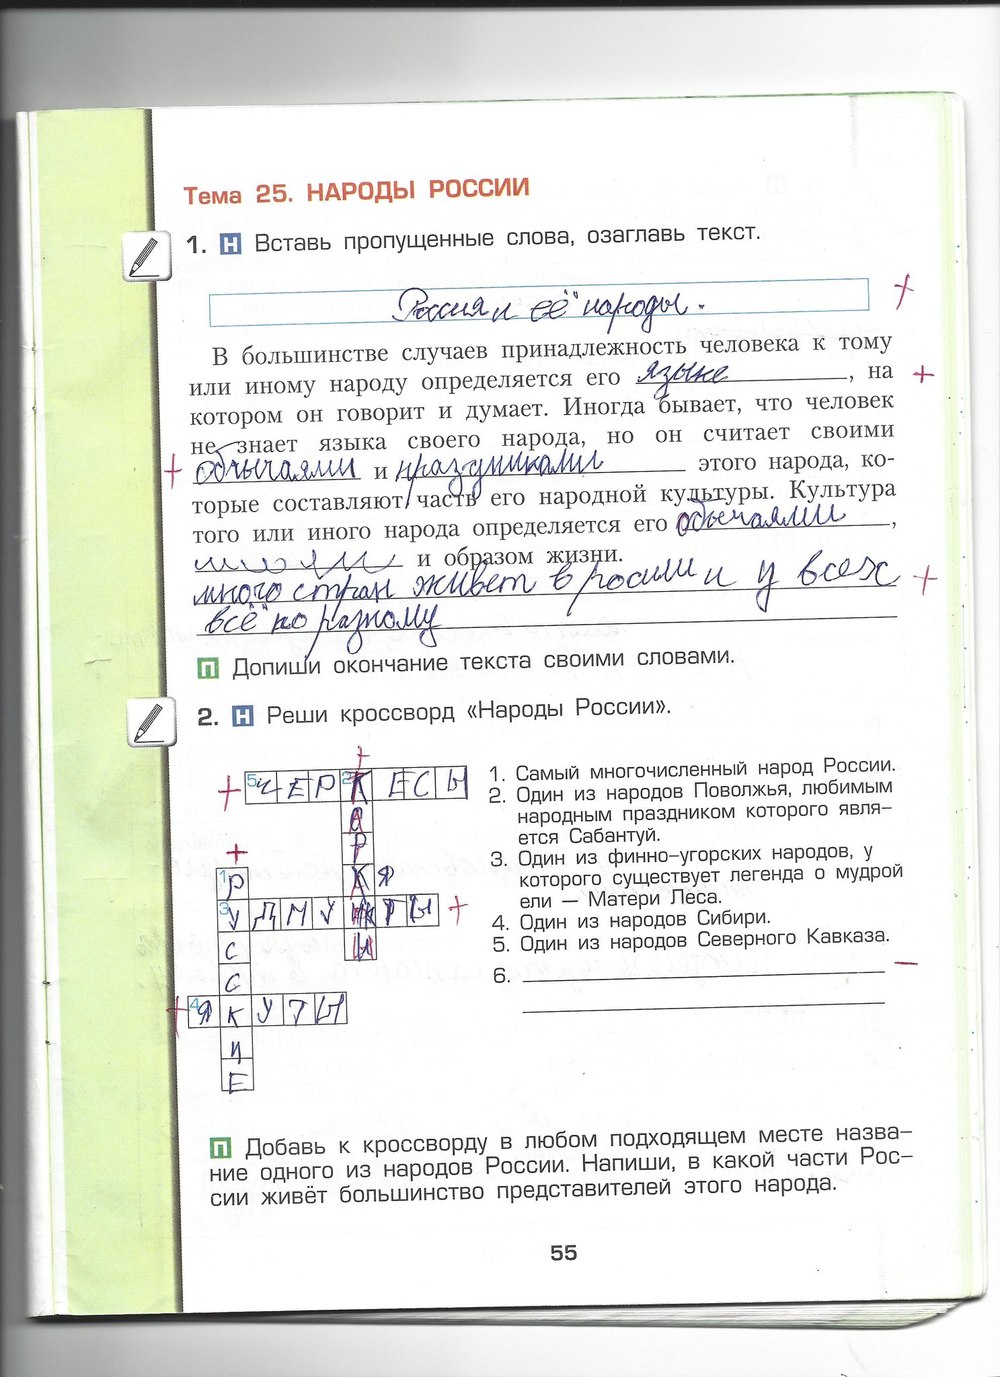 Тема 25. НАРОДЫ РОССИИ
1. Н Вставь пропущенные слова, озаглавь текст.
Россия и её народы.
В большинстве случаев принадлежность человека к тому
или иному народу определяется его языке, на
котором он говорит и думает. Иногда бывает, что человек
не знает языка своего народа, но он считает своими
обычаями и праздниками этого народа, ко-
торые составляют часть его народной культуры. Культура
того или иного народа определяется его обычаями,
и образом жизни.
много стран живет в росиии и у всех
всё по разному
П Допиши окончание текста своими словами.
2. Н Реши кроссворд «Народы России».
5 ЧЕР2КЕСЫ
1 РУССКИЕ
3 УДМУРТЫ
4 ЯКУТЫ
1. Самый многочисленный народ России.
2. Один из народов Поволжья, любимым
народным праздником которого явля-
ется Сабантуй.
3. Один из финно-угорских народов, у
которого существует легенда о мудрой
ели — Матери Леса.
4. Один из народов Сибири.
5. Один из народов Северного Кавказа.
6.
П Добавь к кроссворду в любом подходящем месте назва-
ние одного из народов России. Напиши, в какой части Рос-
сии живёт большинство представителей этого народа.
55